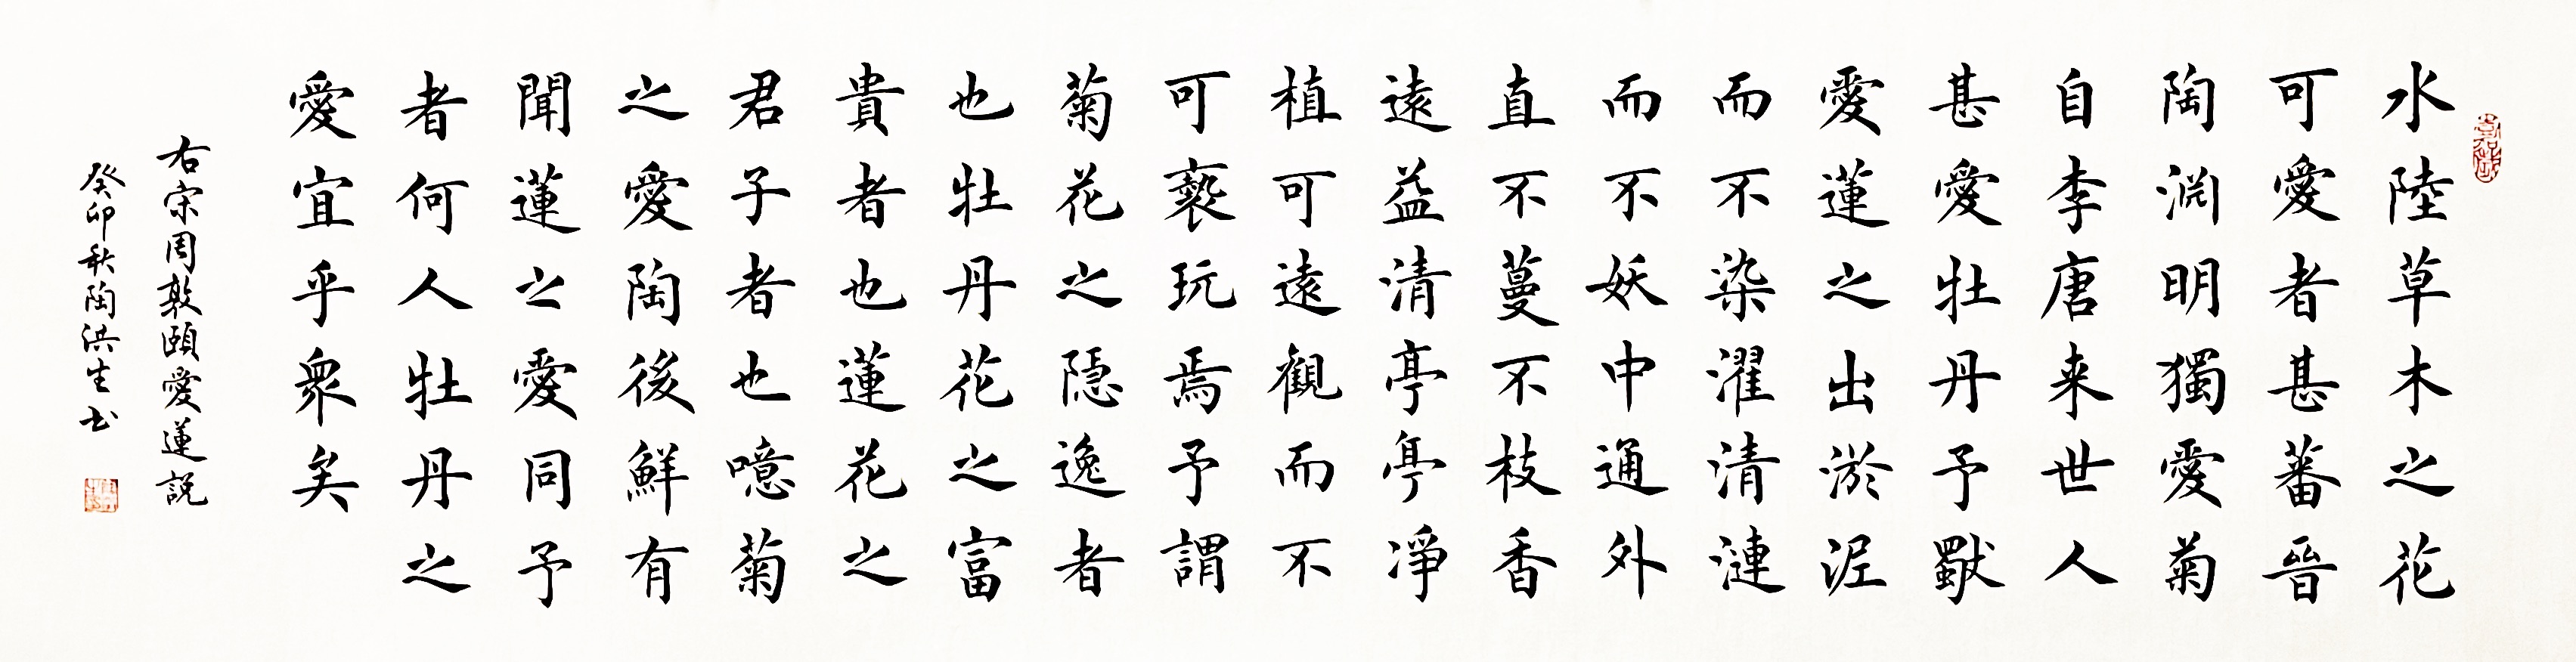 水陸草木之花
可愛者甚蕃晉
陶渊明獨愛菊
自李唐来世人
甚愛牡丹予獨
愛蓮之出淤泥
而不染濯清漣
而不妖中通外
直不蔓不枝香
遠益清亭亭凈
植可遠觀而不
可褻玩焉予謂
菊花之隱逸者
也牡丹花之富
貴者也蓮花之
君子者也噫菊
之愛陶後鮮有
聞蓮之愛同予
者何人牡丹之
愛宜乎衆矣
右宋周敦頤愛蓮説
癸卯秋陶洪生书